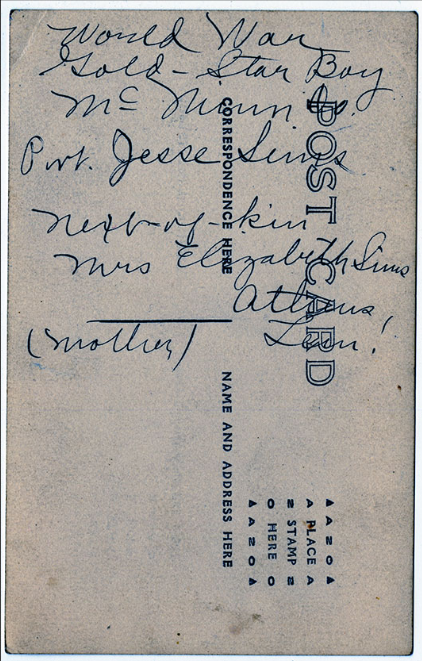 World War
Gold-Star Boy
Mc Minn
Pvt. Jesse Sims
next-of-kin
Mrs Elizabeth Sims
Athens,
(mother) Tenn.
POST CARD
CORRESPONDENCE HERE
NAME AND ADDRESS HERE
PLACE
STAMP
HERE